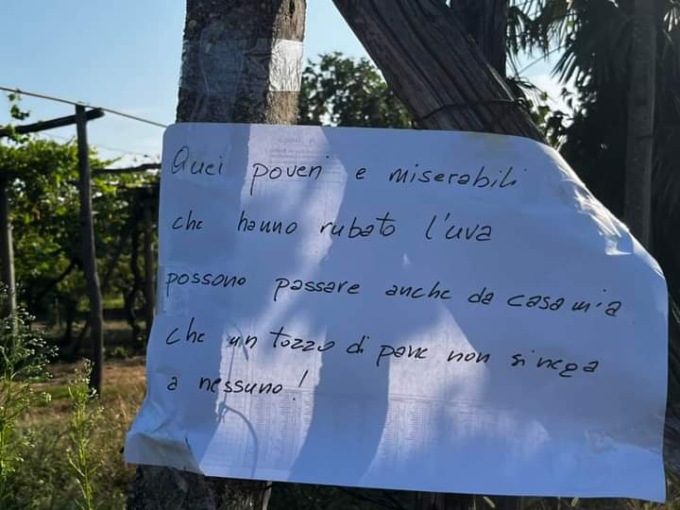 Quei poveri e miserabili
che hanno rubato l'uva
possono passare anche da casa mia
che un tozzo di pane non si nega
a nessuno!